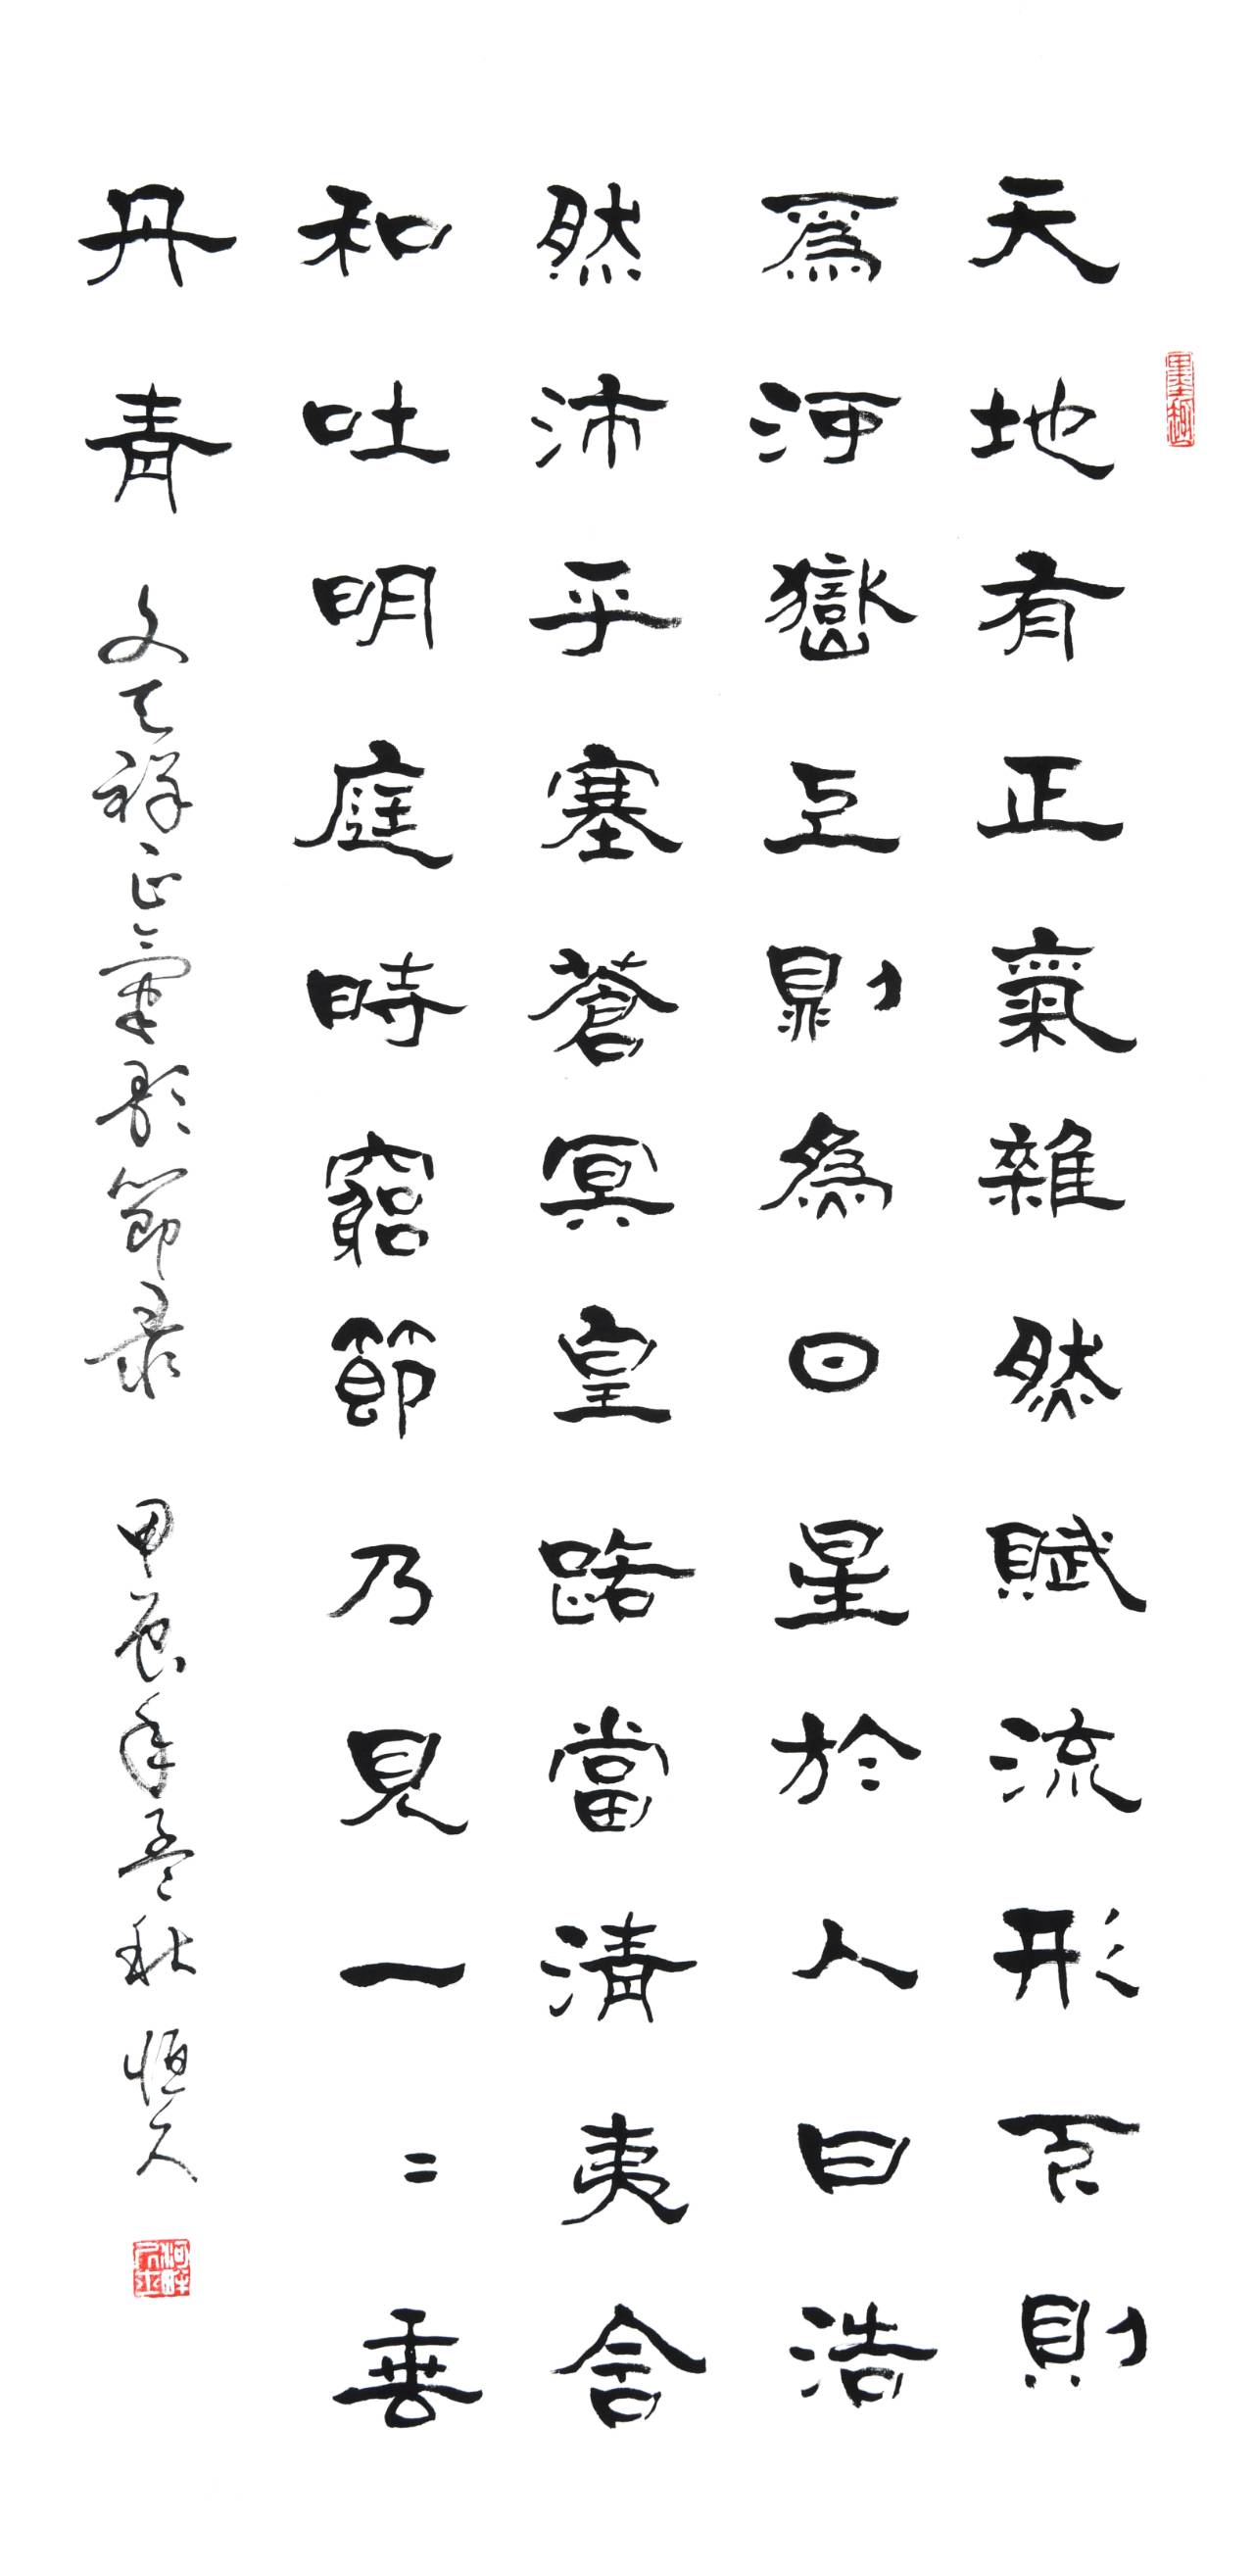 天地有正氣雜然賦流形下則
爲河嶽上則爲日星於人曰浩
然沛乎塞蒼冥皇路當清夷含
和吐明庭時窮節乃見一〻垂
丹青 文天祥正氣歌節录 甲辰年孟秋 恒久